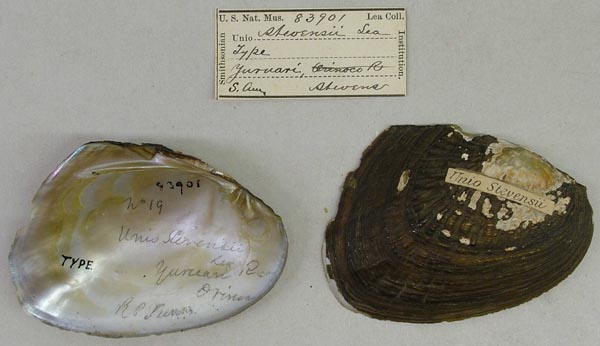 U. S. Nat. Mus. 83901 Lea Coll.
Smithsonian
Institution.
Unio Stevensii Lea
Type
Yuruari, Orinoco R
S. Am. Stevens
83901
No 19
Unio Stevensii
Lea
Yuruari R
Orinoco
TYPE.
Unio Stevensii